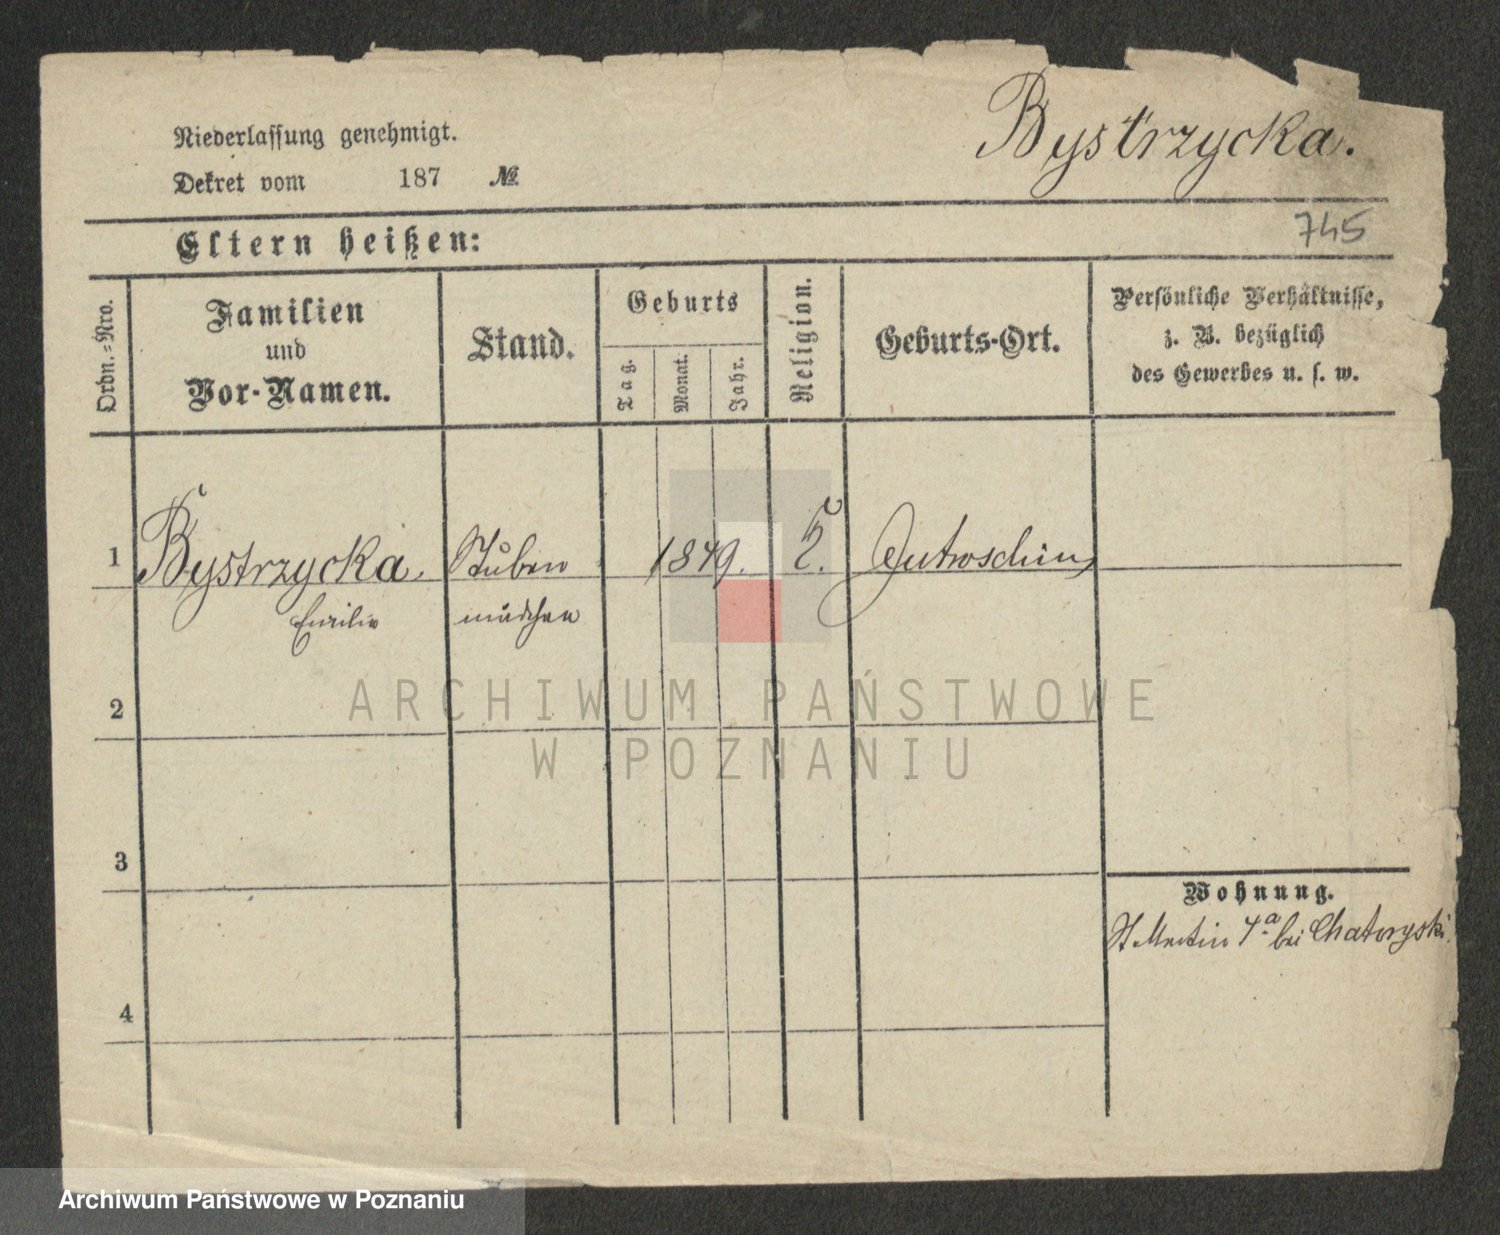 Bystrzycka.
Niederlassung genehmigt.
Dekret vom 187 №
745
Eltern heißen:
Ordn.-Nro.
Familien
und
Vor-Namen.
Stand.
Geburts
Tag.
Monat.
Jahr.
Religion.
Geburts-Ort.
Persönliche Verhältnisse,
z. B. bezüglich
des Gewerbes u. s. w.
1 Bystrzycka. Stuben 1849. Jutroschin
Emilie mädchen
2
3
4
Wohnung.
St Martin 4a bei Chatoryski.
ARCHIWUM PAŃSTWOWE
W POZNANIU
Archiwum Państwowe w Poznaniu